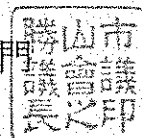 門
勝山市
議會議
長之印